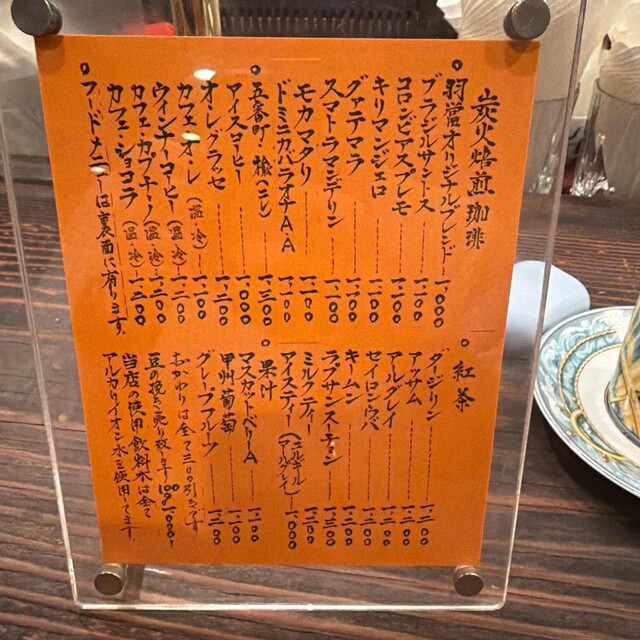 炭火焙煎珈琲
羽當オリジナルブレンド 一、〇〇〇
ブラジルサントス 一、一〇〇
コロンビアスプレモ 一、一〇〇
キリマンジェロ 一、一〇〇
グァテマラ 一、一〇〇
スマトラマンデリン 一、一〇〇
モカマタリ 一、一〇〇
ドミニカバラオナAA 一、一〇〇
五番町・楡(ニレ) 一、三〇〇
アイスコーヒー 一、一〇〇
オ・レグラッセ 一、二〇〇
カフェ・オ・レ(温・冷) 一、一〇〇
ウィンナーコーヒー(温・冷) 一、二〇〇
カフェ・カプチーノ(温・冷) 一、二〇〇
カフェ・ショコラ(温・冷) 一、二〇〇
フードメニューは裏面に有ります。
紅茶
ダージリン 一、一〇〇
アッサム 一、二〇〇
アールグレイ 一、二〇〇
セイロンウバ 一、二〇〇
キームン 一、二〇〇
ラプサンスーチョン 一、三〇〇
ミルクティー 一、二〇〇
アイスティー 一、〇〇〇
果汁
マスカットベリーA 一、一〇〇
甲州葡萄 一、二〇〇
グレープフルーツ 一、二〇〇
おかわりは全て三〇〇引きです
豆の挽き売り致します 100g 1,000
当店の使用飲料水は全て
アルカリイオン水を使用してます。